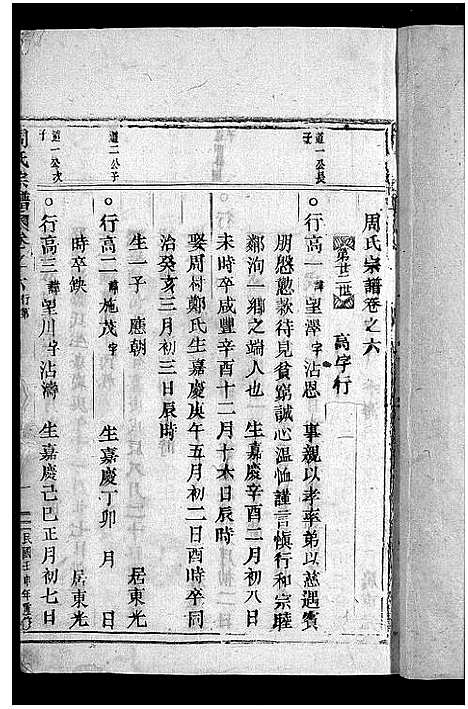 周氏宗譜卷之六
第廿二世 高字行
道一公長子
○行高一 諱望澤字沾恩 事親以孝率弟以慈遇賓
朋慇懃款待見貧窮誠心温恤謹言慎行和宗睦
鄰洵一鄉之端人也 生嘉慶辛酉二月初八日
未時卒咸豐辛酉十二月十六日辰時
娶周村鄭氏生嘉慶庚午五月初二日酉時卒同
治癸亥三月初三日辰時
生一子 應朝
道二公子
○行高二 諱施茂字 生嘉慶丁卯 月 日
時卒缺 居東光
道一公次子
○行高三 諱望川字沾濤 生嘉慶己巳正月初七日
周氏宗譜 卷之六 行第 一 民國壬申年重修